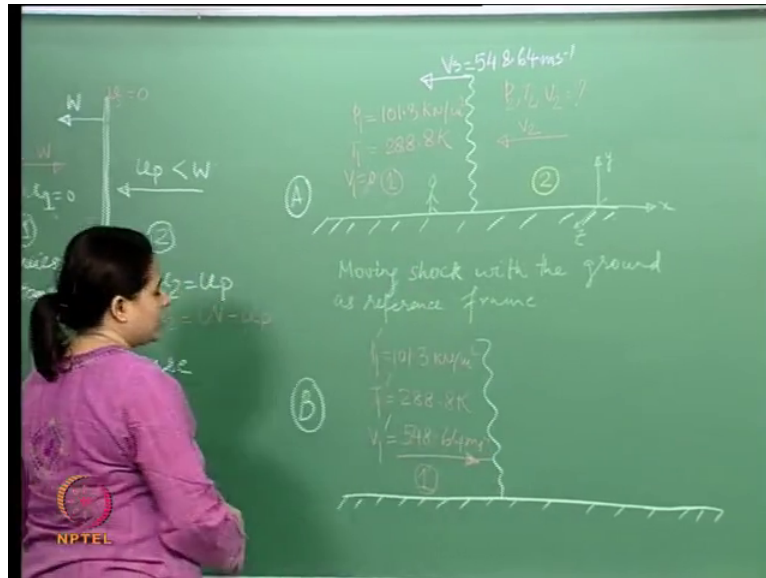 W
=0
W
u1=0
①
②
up < W
= up
= W - up
Vs=548.64ms⁻¹
P1=101.3 KN/m²
T1=288.8K
V1=0 ①
P2 T2 V2=?
V2
②
Ⓐ
y
x
z
Moving shock with the ground
as reference frame
Ⓑ
P1'=101.3 KN/m²
T1'=288.8K
V1'=548.64ms⁻¹
①
NPTEL